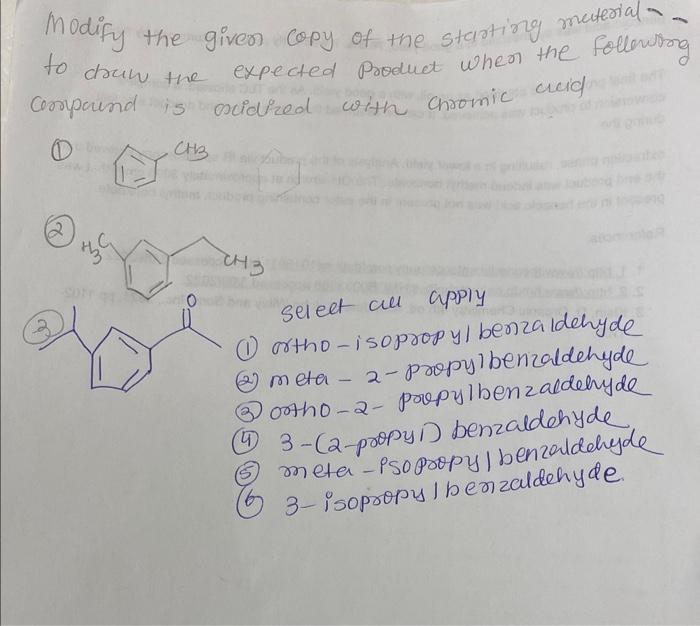 Modify the given copy of the starting material -
to draw the expected product when the following
compound is oxidized with chromic acid
① CH3
② H3C CH3
③ O
select all apply
① ortho-isopropylbenzaldehyde
② meta-2-propylbenzaldehyde
③ ortho-2-propylbenzaldehyde
④ 3-(2-propyl) benzaldehyde
⑤ meta-isopropylbenzaldehyde
⑥ 3-isopropylbenzaldehyde.